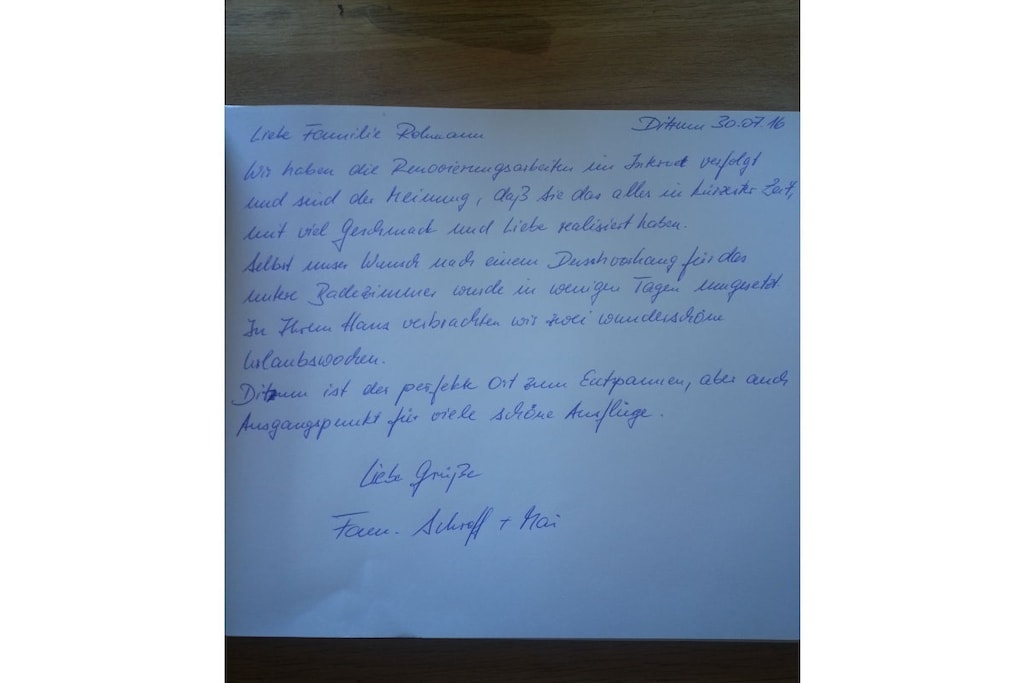 Ditzum 30.07.16
Liebe Familie Rohmann
Wir haben die Renovierungsarbeiten im Internet verfolgt
und sind der Meinung, daß Sie das alles in kürzester Zeit,
mit viel Geschmack und Liebe realisiert haben.
Selbst unser Wunsch nach einem Duschvorhang für das
untere Badezimmer wurde in wenigen Tagen umgesetzt.
In Ihrem Haus verbrachten wir zwei wunderschöne
Urlaubswochen.
Ditzum ist der perfekte Ort zum Entspannen, aber auch
Ausgangspunkt für viele schöne Ausflüge.
Liebe Grüße
Fam. Schroff + Mai